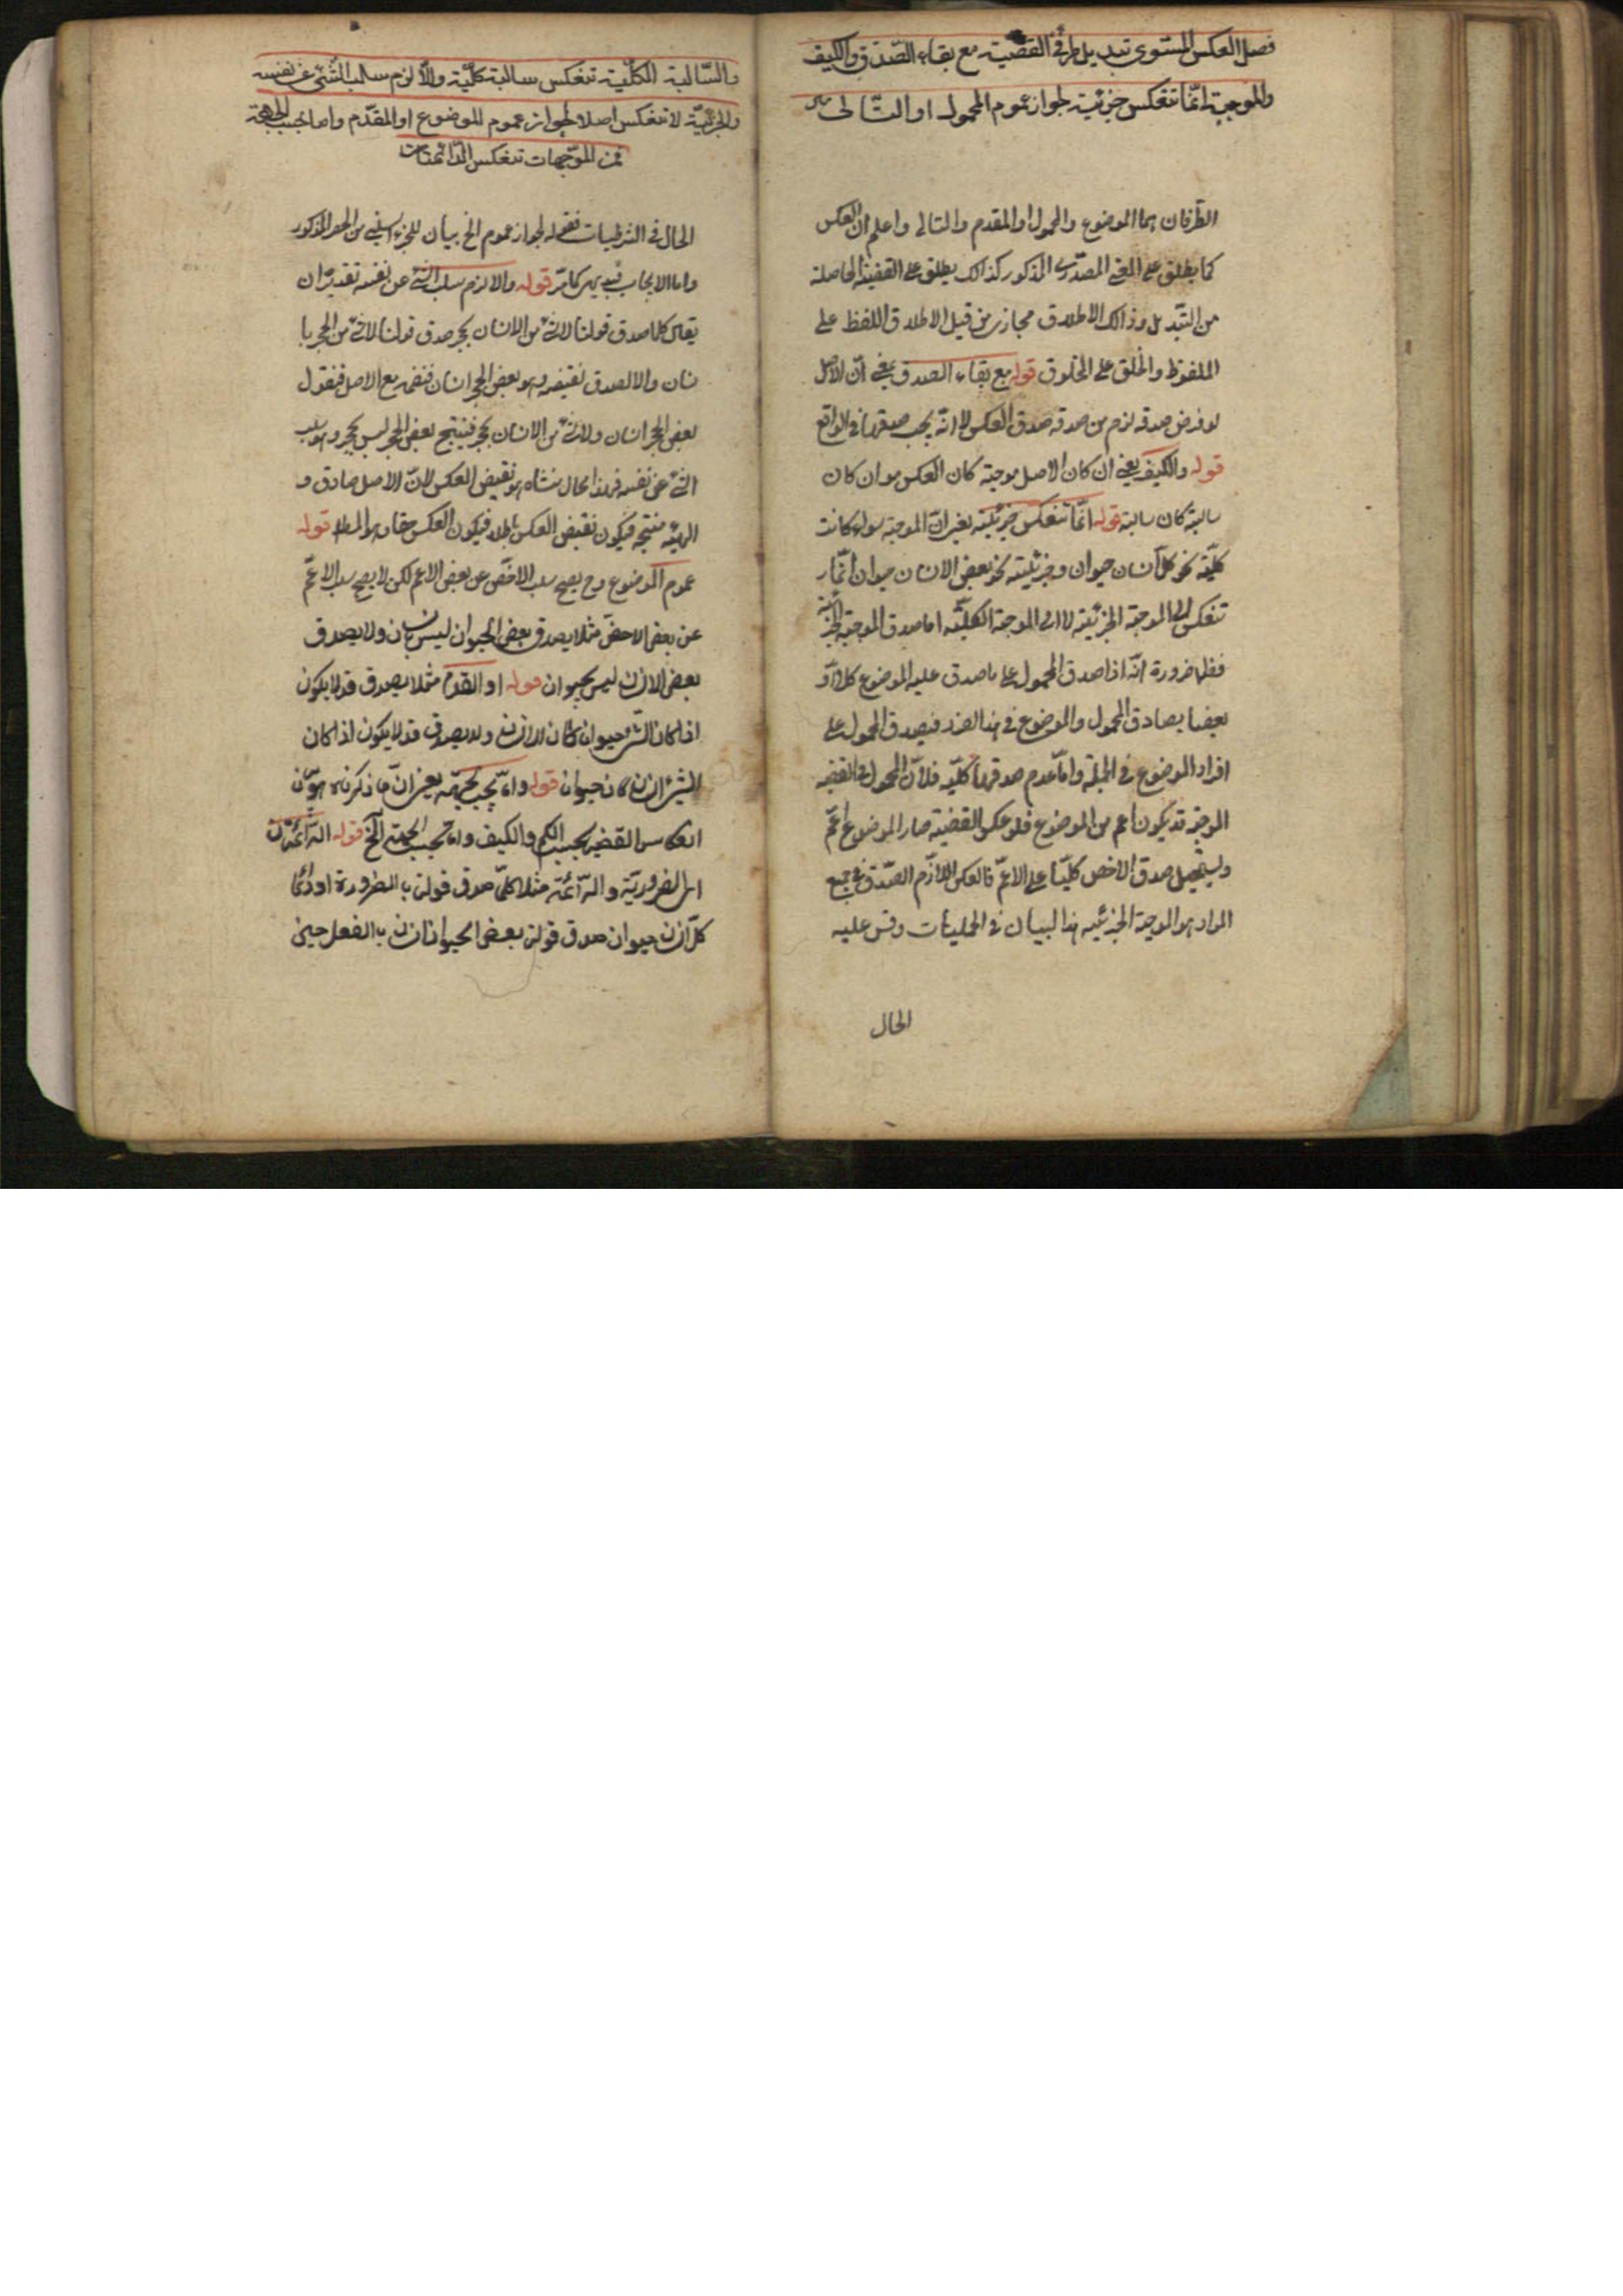 فصل العكس المستوى تبديل طرفى القضية مع بقاء الصدق والكيف
والموجبة انما تنعكس جزئية لجواز عموم المحمول او التالى
الطرفان هما الموضوع والمحمول او المقدم والتالى واعلم ان العكس
كما يطلق على المعنى المصدرى المذكور كذالك يطلق على القضية الحاصلة
من التبديل وذالك الاطلاق مجازى من قبيل الاطلاق اللفظ على
الملفوظ والخلق على المخلوق قوله مع بقاء الصدق يعنى ان الاصل
لو فرض صدقه لزم من صدقه صدق العكس لا انه يجب صدقهما فى الواقع
قوله والكيف يعنى ان كان الاصل موجبة كان العكس موان كان
سالبة كان سالبة قوله انما تنعكس جزئية يعنى ان الموجبة سواء كانت
كلية نحو كل انسان حيوان وجزئيته نحو بعض الانسان حيوان انما
تنعكس الى الموجبة الجزئية لا الى الموجبة الكلية اما صدق الموجبة الجزئية
فظاهرضرورة انه اذا صدق المحمول على ما صدق عليه الموضوع كلا او
بعضا يصادق المحمول والموضوع فى هذا الفرد فيصدق المحمول على
افراد الموضوع فى الجملة واما عدم صدقها كلية فلان المحمول فى القضية
الموجبة قد يكون اعم من الموضوع فلو عكس القضية صار الموضوع اعم
ويستحيل صدق الاخص كليا على الاعم فالعكس اللازم الصدق فى جميع
المواد هو الموجبة الجزئيه هذا البيان فى الحمليات وقس عليه
الحال
والسالبة الكلية تنعكس سالبة كلية والا لزم سلب الشئ عن نفسه
والجزئية لا تنعكس اصلا لجواز عموم الموضوع او المقدم واما بحسب الجهة
فمن الموجهات تنعكس الدائمتان
الحال فى الشرطيات فقوله لجواز عموم الخ بيان للجزء السلبى من الحصر المذكور
واما الايجاب فبديهى كما مر قوله والا لزم سلب الشئ عن نفسه تقديره ان
يقال كلما صدق قولنا لا شئ من الانسان بحجر صدق قولنا لا شئ من الحجر با
نسان والا لصدق نقيضه وهو بعض الحجر انسان فنضمه مع الاصل فنقول
بعض الحجر انسان ولا شئ من الانسان بحجر فينتج بعض الحجر ليس بحجر وهو سلب
الشئ عن نفسه فهذا محال منشاه هو نقيض العكس لان الاصل صادق و
الهيئة منتجة فيكون نقيض العكس باطلا فيكون العكس حقا وهو المطلوب قوله
عموم الموضوع وح يصح سلب الاخص عن بعض الاعم لكن لا يصح سلب الاعم
عن بعض الاخص مثلا يصدق بعض الحيوان ليس بانسان ولا يصدق
بعض الانسان ليس بحيوان قوله او المقدم مثلا يصدق قد لا يكون
اذا كان الشئ حيوانا كان انسانا ولا يصدق قد لا يكون اذا كان
الشئ انسانا كان حيوانا قوله واما بحسب الجهة يعنى ان ما ذكرناه هو بيان
انعكاس القضية بحسب الكم والكيف واما بحسب الجهة الخ قوله الدائمتان
اى الضرورية والدائمة مثلا كلما صدق قولنا بالضرورة او دائما
كل انسان حيوان صدق قولنا بعض الحيوان انسان بالفعل حين